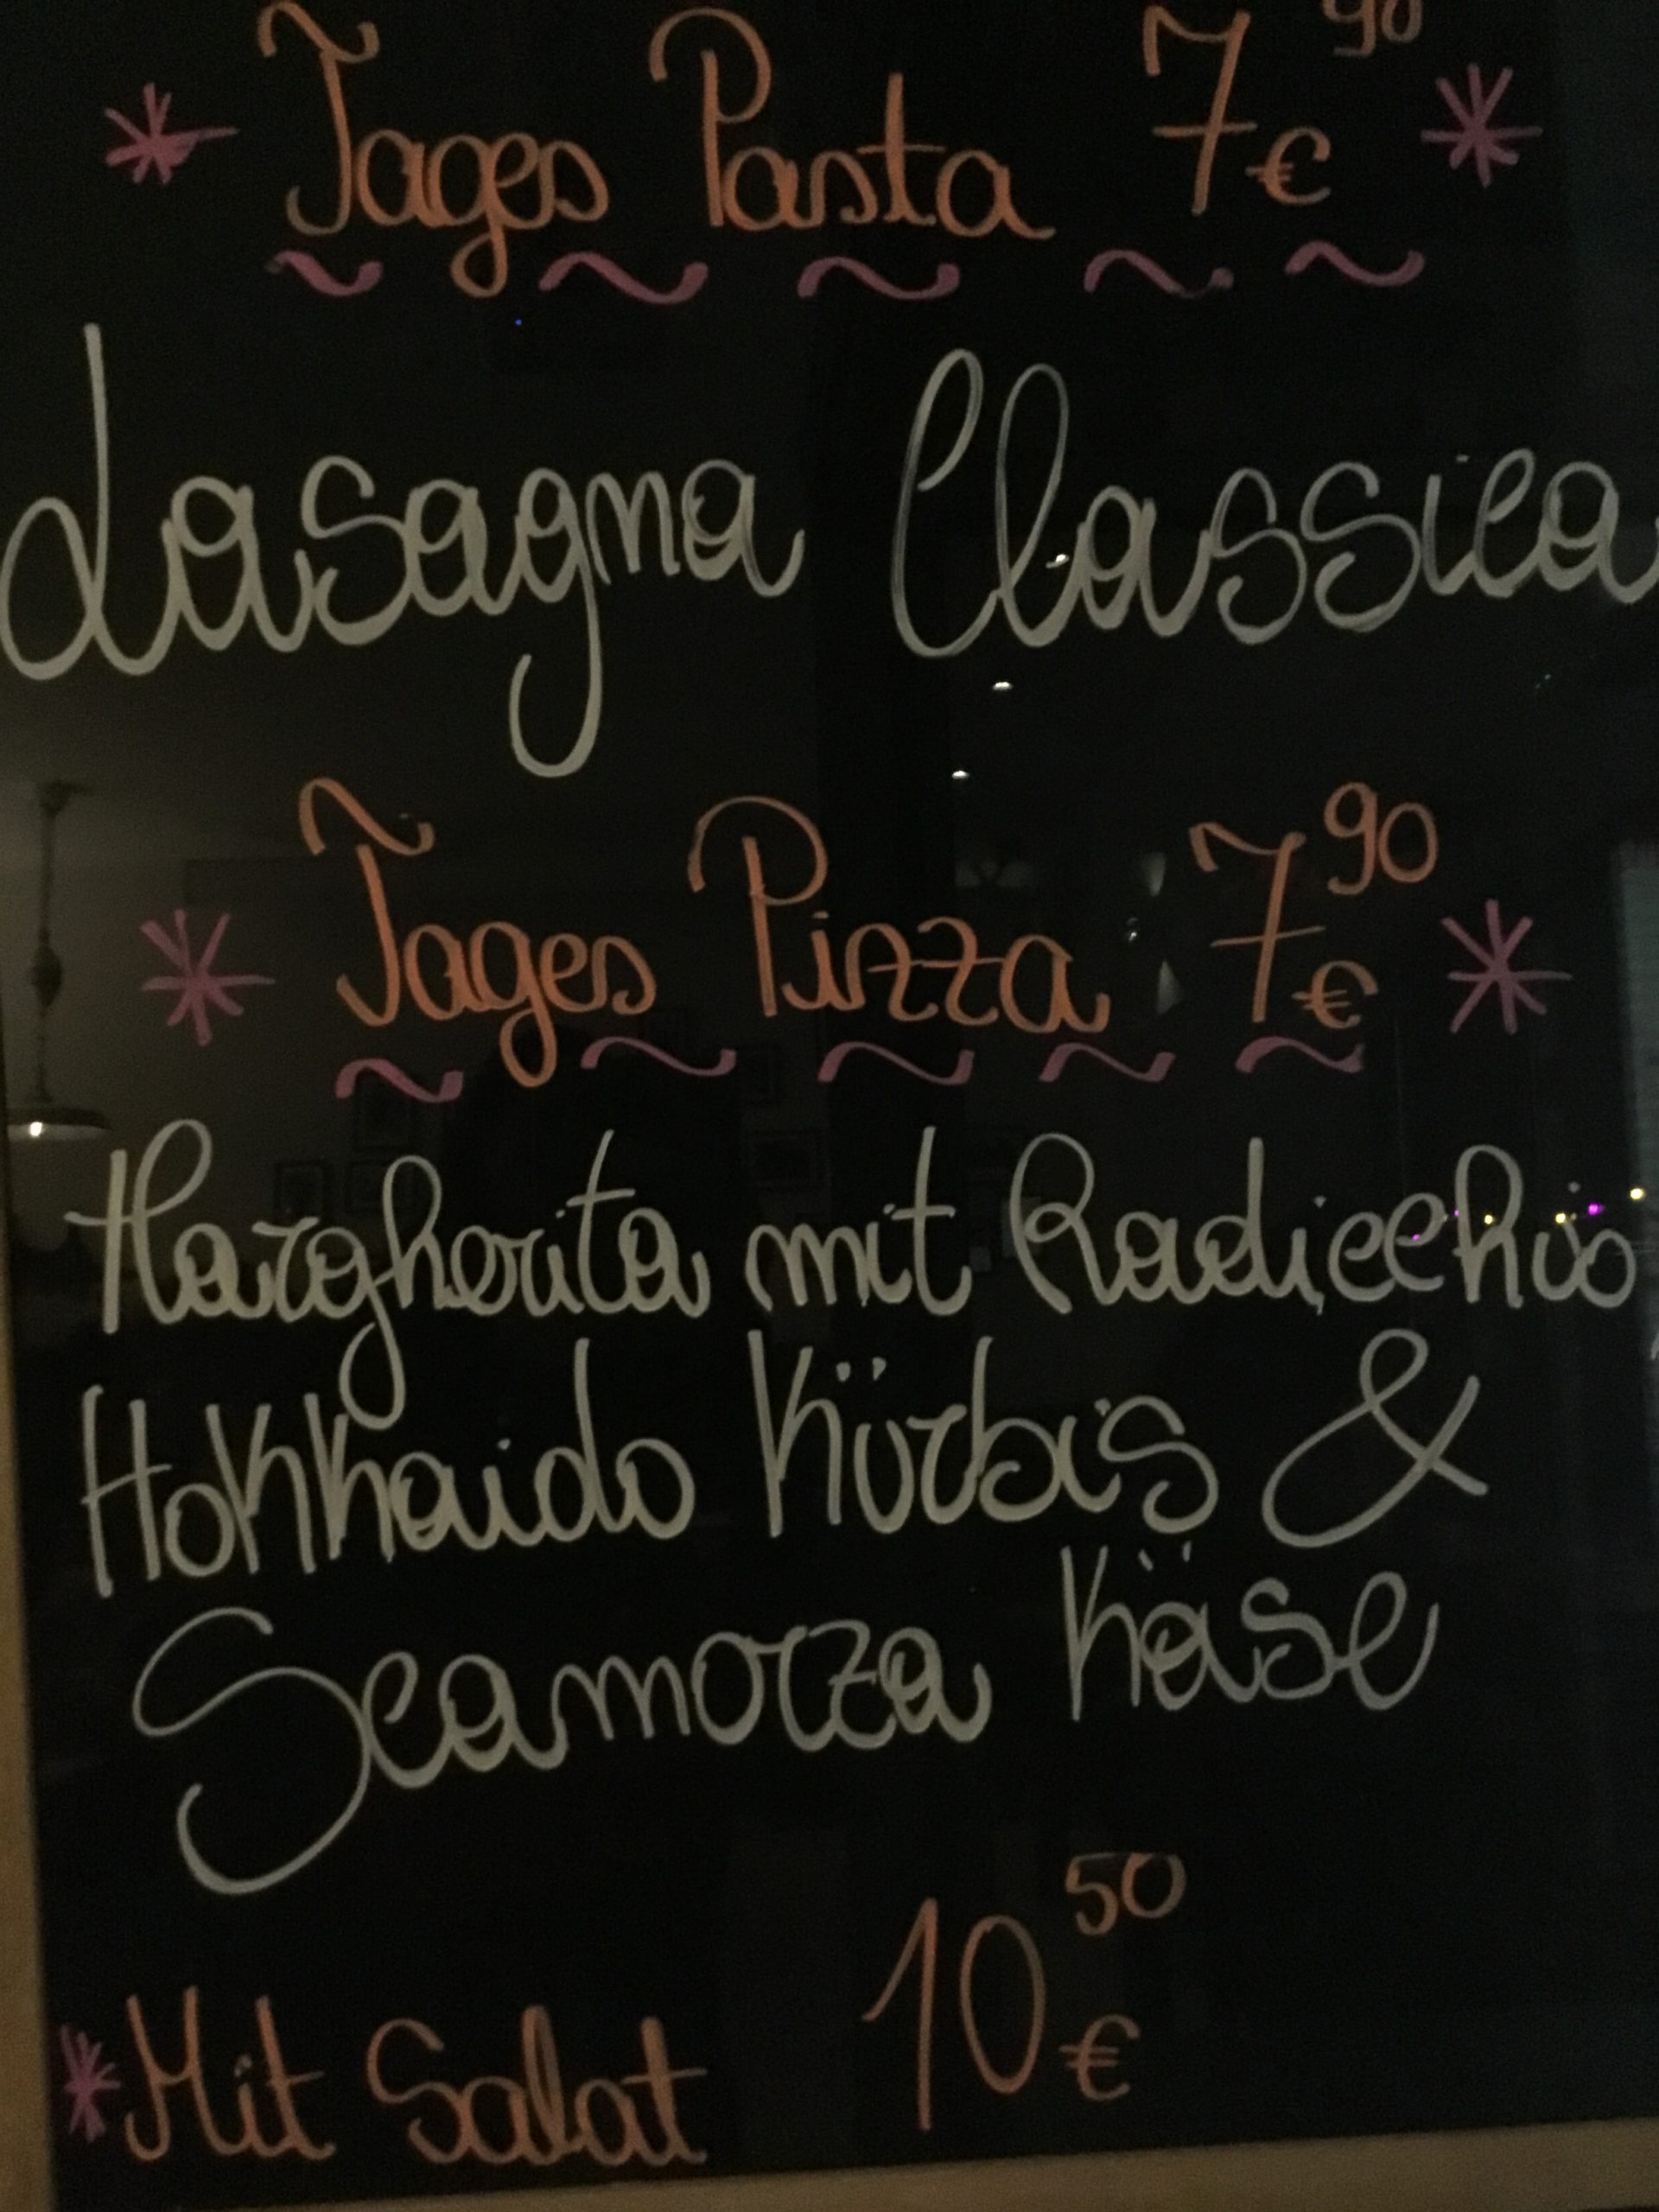 * Tages Pasta 7€ 90 *
~ ~ ~ ~ ~
Lasagna Classica
* Tages Pizza 7€ 90 *
~ ~ ~ ~ ~
Margherita mit Radicchio
Hokkaido Kürbis &
Scamorza Käse
*Mit Salat 10€ 50